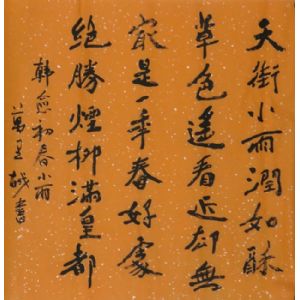 天街小雨潤如酥
草色遙看近却無
最是一年春好處
絕勝煙柳滿皇都
韓愈初春小雨
書